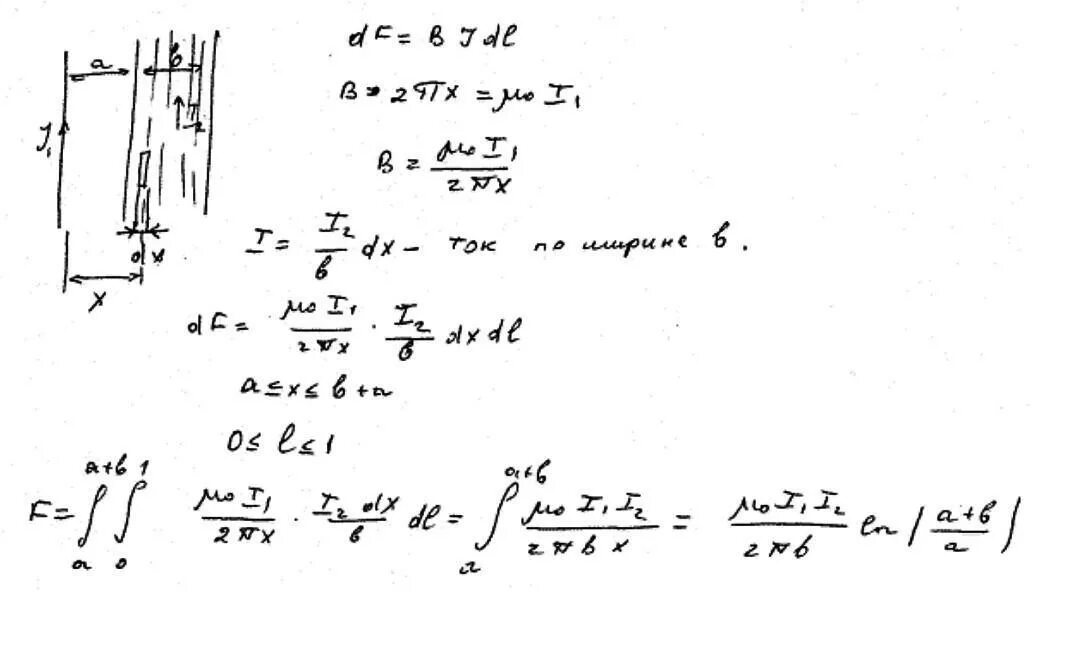 a
в
I₁
I₂
dx
x
dF = B I dl
B · 2πx = μ₀ I₁
B = μ₀ I₁ / 2πx
I = I₂/в dx – ток по ширине в.
dF = μ₀ I₁ / 2πx · I₂/в dx dl
a ≤ x ≤ в + a
0 ≤ l ≤ 1
F = ∫ₐᵃ⁺ᵇ ∫₀¹ μ₀ I₁ / 2πx · I₂ dx / в dl = ∫ₐᵃ⁺ᵇ μ₀ I₁ I₂ / 2πвx = μ₀ I₁ I₂ / 2πв ln | (a+в)/a |